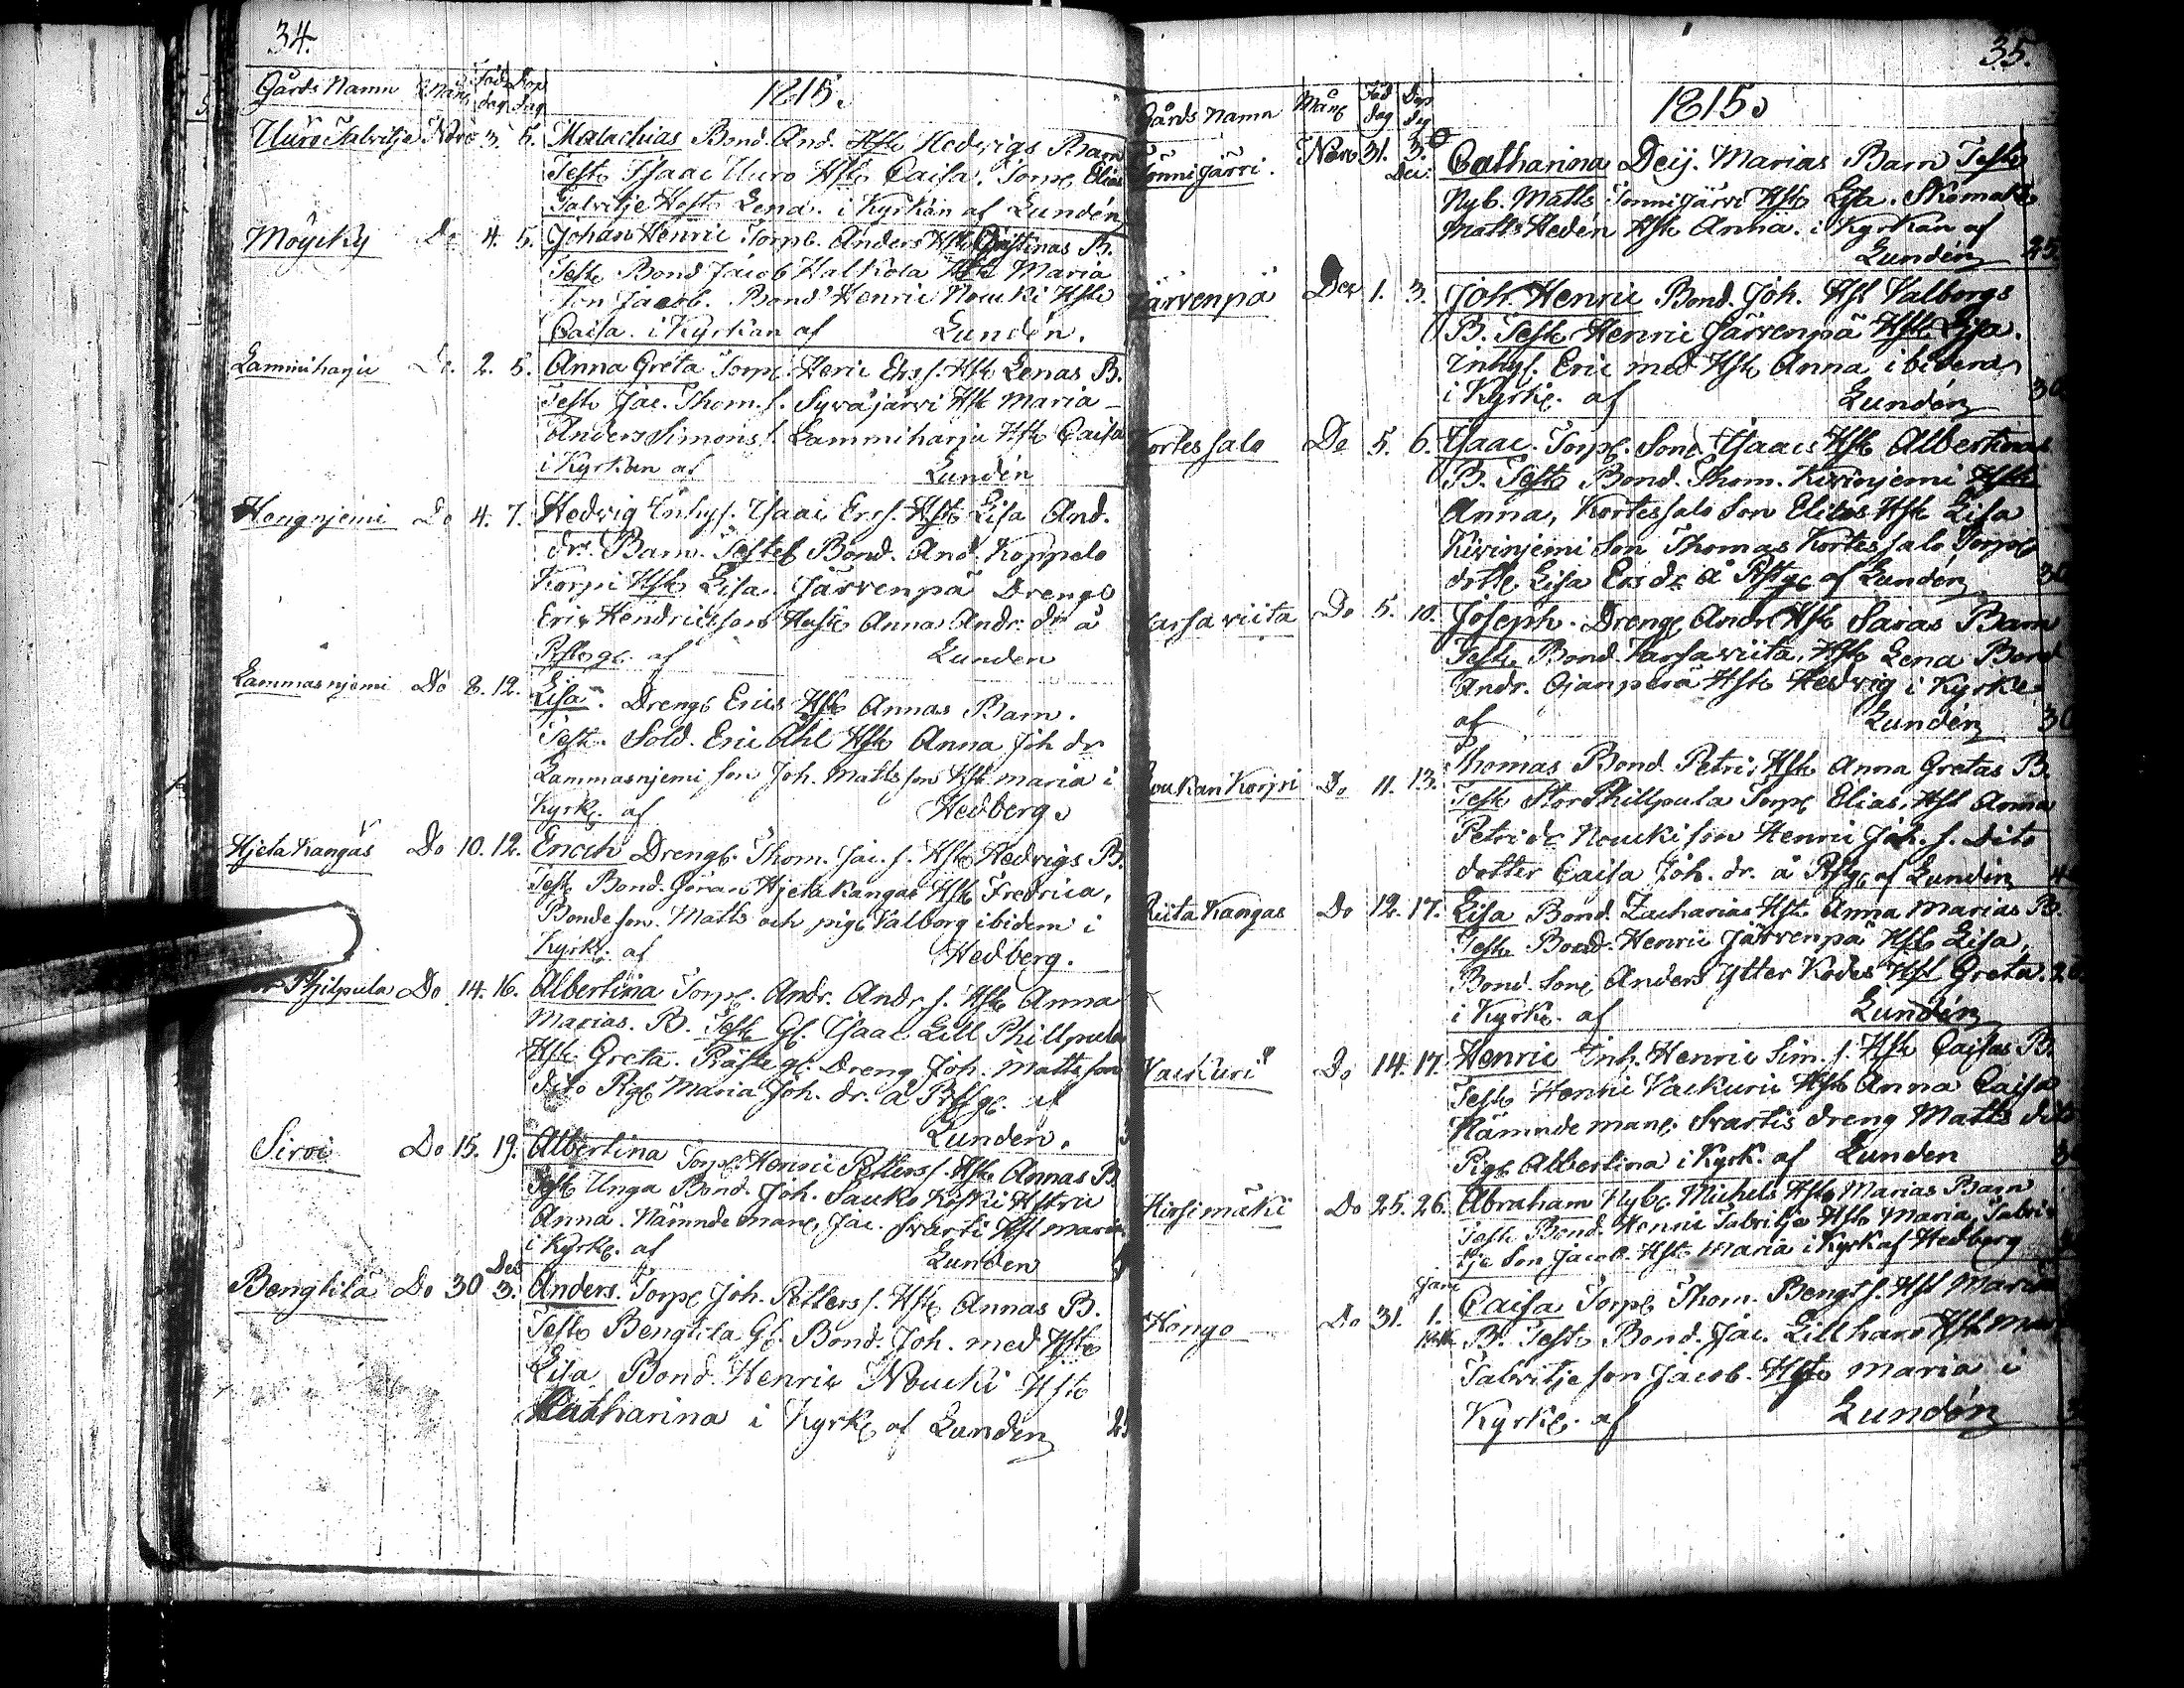 34.
Gårds Namn Mån Föd dag Döp dag 1815.
Uuro Talvitje Nov 3. 5. Malachias Bond. And. Hst Hedvigs Barn
Test Isaac Uuro Hst Caisa. Torp Elias
Talvitje Hst Lena. i Kyrkan af Lundén
Möycky Do 4. 5. Johan Henric Torp. Anders Hst Christinas B.
Test Bond Jacob Kalkola Hst Maria
Son Jacob. Bond Henric Noucki Hst
Caisa. i Kyrkan af Lundén.
Lammiharju Do. 2. 5. Anna Greta Torp Heric Ers s. Hst Lenas B.
Test Jac. Thom. s. Syväjärvi Hst Maria
Anders Simons s. Lammiharju Hst Caisa
i Kyrkan af Lundén
Hengnjemi Do 4. 7. Hedvig Inhys. Isaac Ers s. Hst Lisa And.
dr. Barn. Test Bond. And. Koppelo
Korpi Hst Lisa. Järvenpä Dreng
Eric Hendricsson Hust Anna Andr. dr å
Prstg. af Lunden
Lammasnjemi Do 8. 12. Lisa. Dreng Erics Hst Annas Barn.
Test. Sold. Eric Åhl Hst Anna Joh dr
Lammasnjemi son Joh. Mattsson Hst Maria i
Kyrk. af Hedberg.
Hjetakangas Do 10. 12. Erich Dreng. Thom. Jac. s. Hst Hedvigs B.
Test Bond. Göran Hjetakangas Hst Fredrica,
Bonde son. Matts och pig Valborg ibidem i
Kyrk. af Hedberg.
Philpula Do 14. 16. Albertina Torp. Andr. Andr. s. Hst Anna
Marias. B. Test Gf. Isaac Lill Phillpula
Hst. Greta. Präste g. Dreng Joh. Mattsson
dito Pig Maria Joh. dr. å Prstg. af
Lunden.
Siroi Do 15. 19. Albertina Torp. Henric Petters s. Hst Annas B.
Test Unga Bond. Joh. Sauko Koski Hstru
Anna. Nämndeman, Jac. Svarti Hst Maria
i Kyrk. af Lunden
Bengtila Do 30 Dec 3. Anders. Torp Joh. Petters s. Hst Annas B.
Test Bengtila Gf. Bond. Joh. med Hst
Lisa Bond. Henric Noucki Hst
Catharina i Kyrk af Lunden
35.
Gårds Namn Mån Föd dag Döp dag 1815.
Tönnijärvi. Nov 31. 3. Dec: Catharina Deij. Marias Barn Test
Nyb. Matts Tönnijärvi Hst Lisa. Skomak
Matts Hedén Hst Anna. i Kyrkan af
Lundén 25
Järvenpä Dec 1. 3. Joh. Henric Bond. Joh. Hst Valborgs
B. Test Henric Järvenpä Hst Lisa.
Inhys. Eric med Hst Anna ibidem
i Kyrk. af Lundén 30
Kortessalo Do 5. 6. Isaac. Torp. Son Isaacs Hst Albertinas
B. Test Bond. Thom. Kivinjemi Hst
Anna, Kortessalo Son Elias Hst Lisa
Kivinjemi Son Thomas Kortessalo Torp
drtt. Lisa Ers dr å Prstg af Lundén 30
Varsaviita Do 5. 10. Joseph. Dreng Andr. Hst Saras Barn
Test Bond. Varsaviita, Hst Lena Bond
Andr. Ojanperä Hst Hedvig i Kyrk
af Lundén 30
Loukan Korpi Do 11. 13. Thomas Bond. Petri, Hst Anna Gretas B.
Test Stor Phillpula Torp Elias, Hst Anna
Petri dr. Noucki son Henric Joh. s. dito
dotter Caisa Joh. dr. å Prstg af Lundén
Riita Kangas Do 12. 17. Lisa Bond. Zacharias Hst Anna Marias B.
Test Bond. Henric Järvenpä Hst Lisa,
Bond. Son Anders Ytter Kodes Hst Greta.
i Kyrk. af Lundén
Vackuri Do 14. 17. Henric Inh. Henric Sim. s. Hst Caisas B.
Test Henric Vackuri Hst Anna Caisa
Nämndeman. Svartis dreng Matts dito
Pig Albertina i Kyrk. af Lunden
Hirsimäki Do 25. 26. Abraham Nyb. Michels Hst Marias Barn
Test Bond. Henric Talvitje Hst Maria, Talvi
tje Son Jacob. Hst Maria i Kyrk af Hedberg
Hongo Do 31. Jan 1. Caisa Torp Thom. Bengts s. Hst Maria
B. Test Bond. Jac. Lillharo Hst
Talvitje son Jacob. Hst Maria i
Kyrk. af Lundén